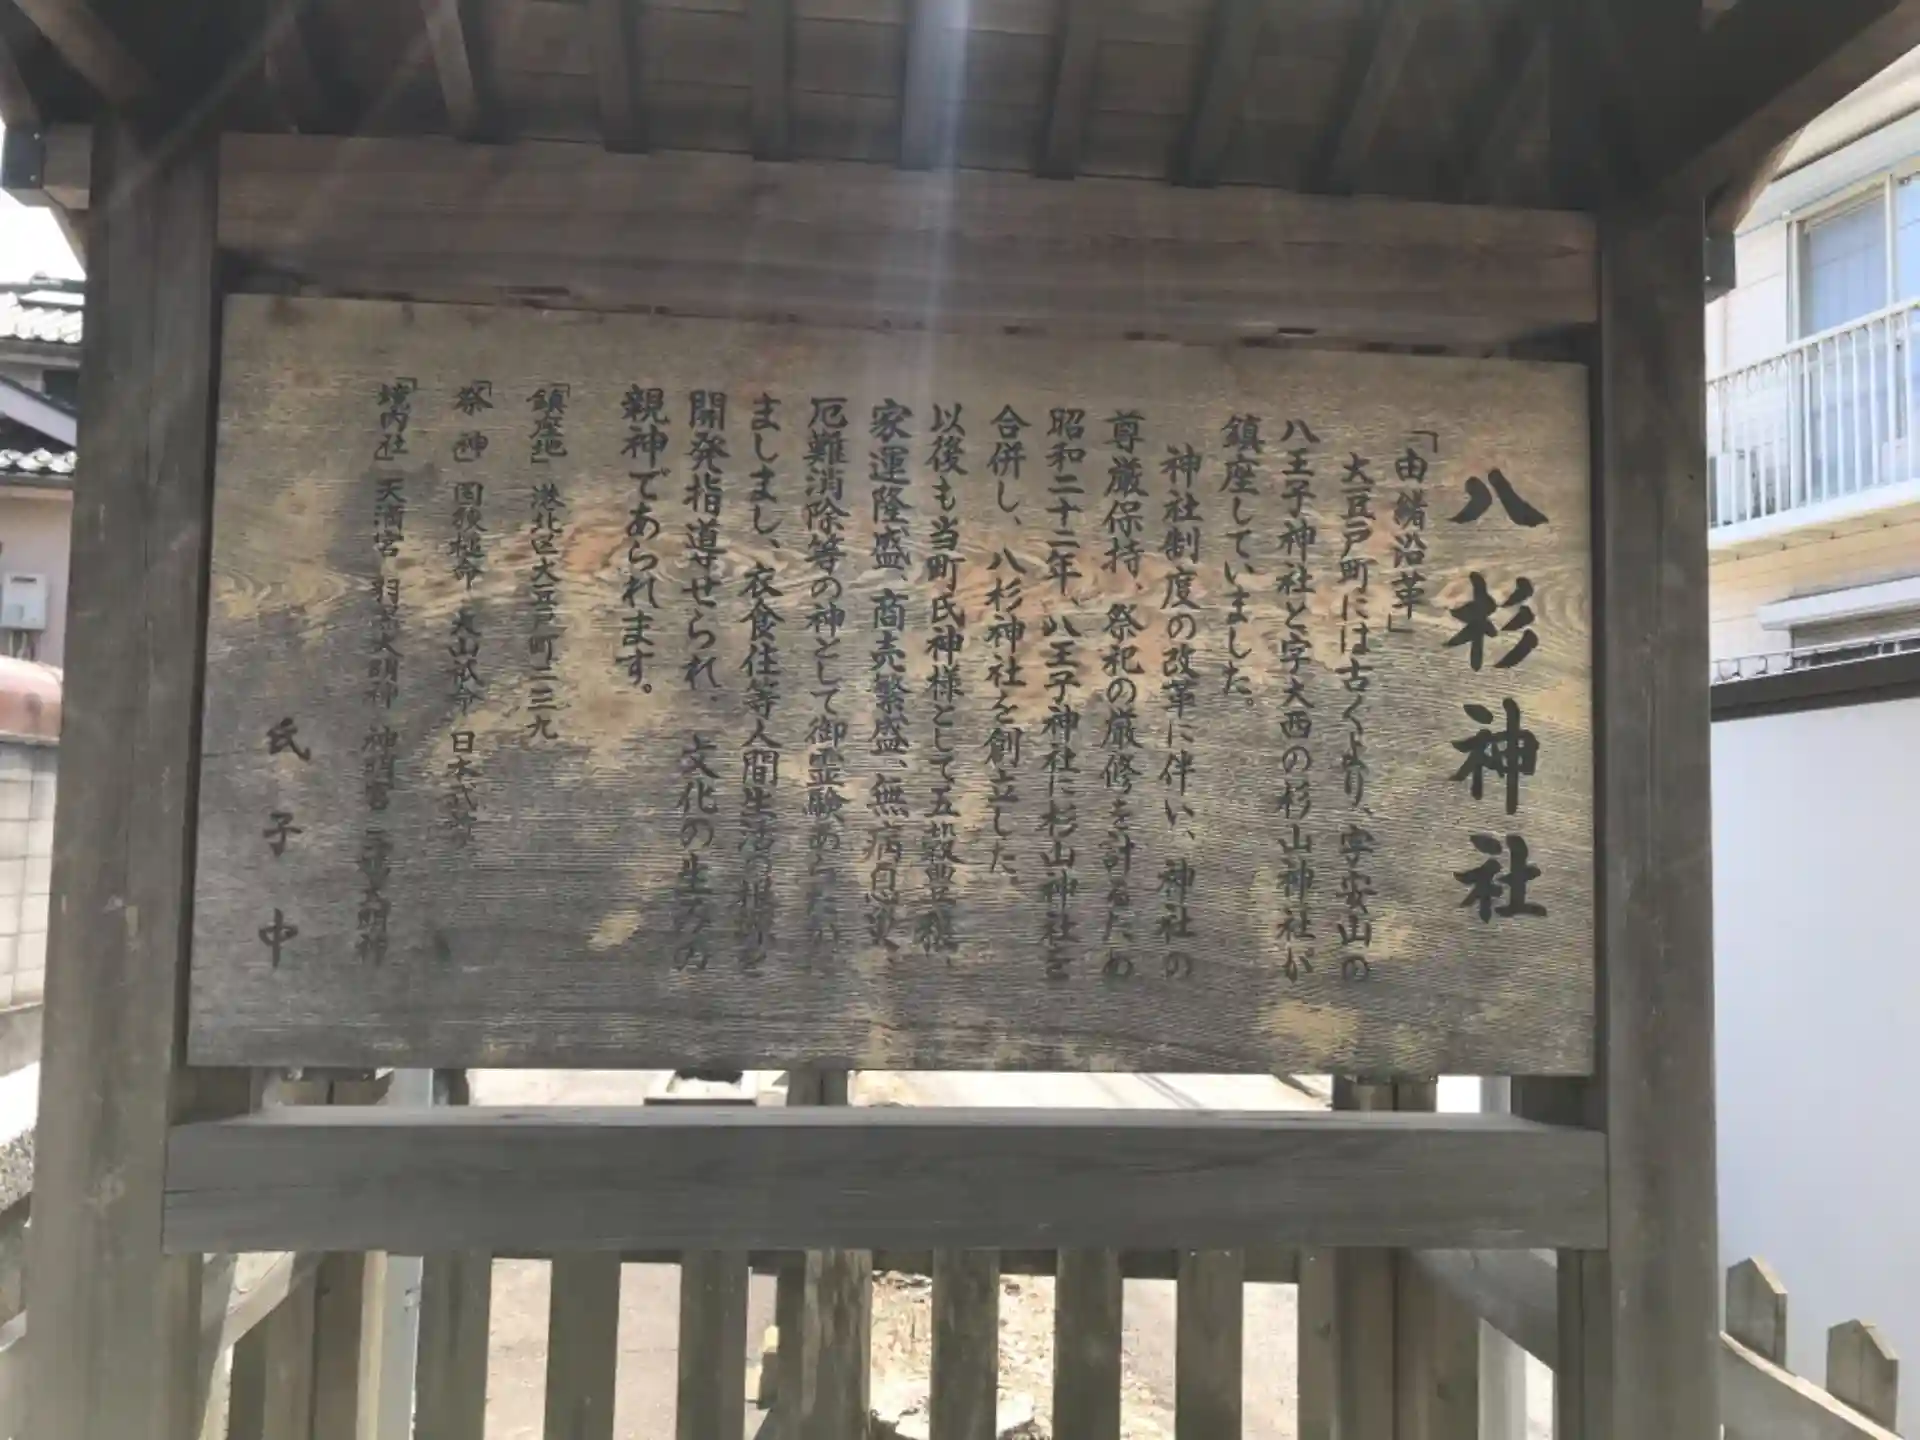 八杉神社
「由緒沿革」
大豆戸町には古くより、字安山の
八王子神社と字大西の杉山神社が
鎮座していました。
神社制度の改革に伴い、神社の
尊厳保持、祭祀の厳修を計るため
昭和二十二年、八王子神社に杉山神社を
合併し、八杉神社を創立した。
以後も当町氏神様として五穀豊穣、
家運隆盛、商売繁盛、無病息災、
厄難消除等の神として御霊験あらたかに
ましまし、衣食住等人間生活の根源を
開発指導せられ、文化の生みの
親神であられます。
「鎮座地」港北区大豆戸町二三九
「祭神」国狭槌命 大山祇命 日本武尊
「境内社」天満宮 大明神 神明宮 大明神
氏子中